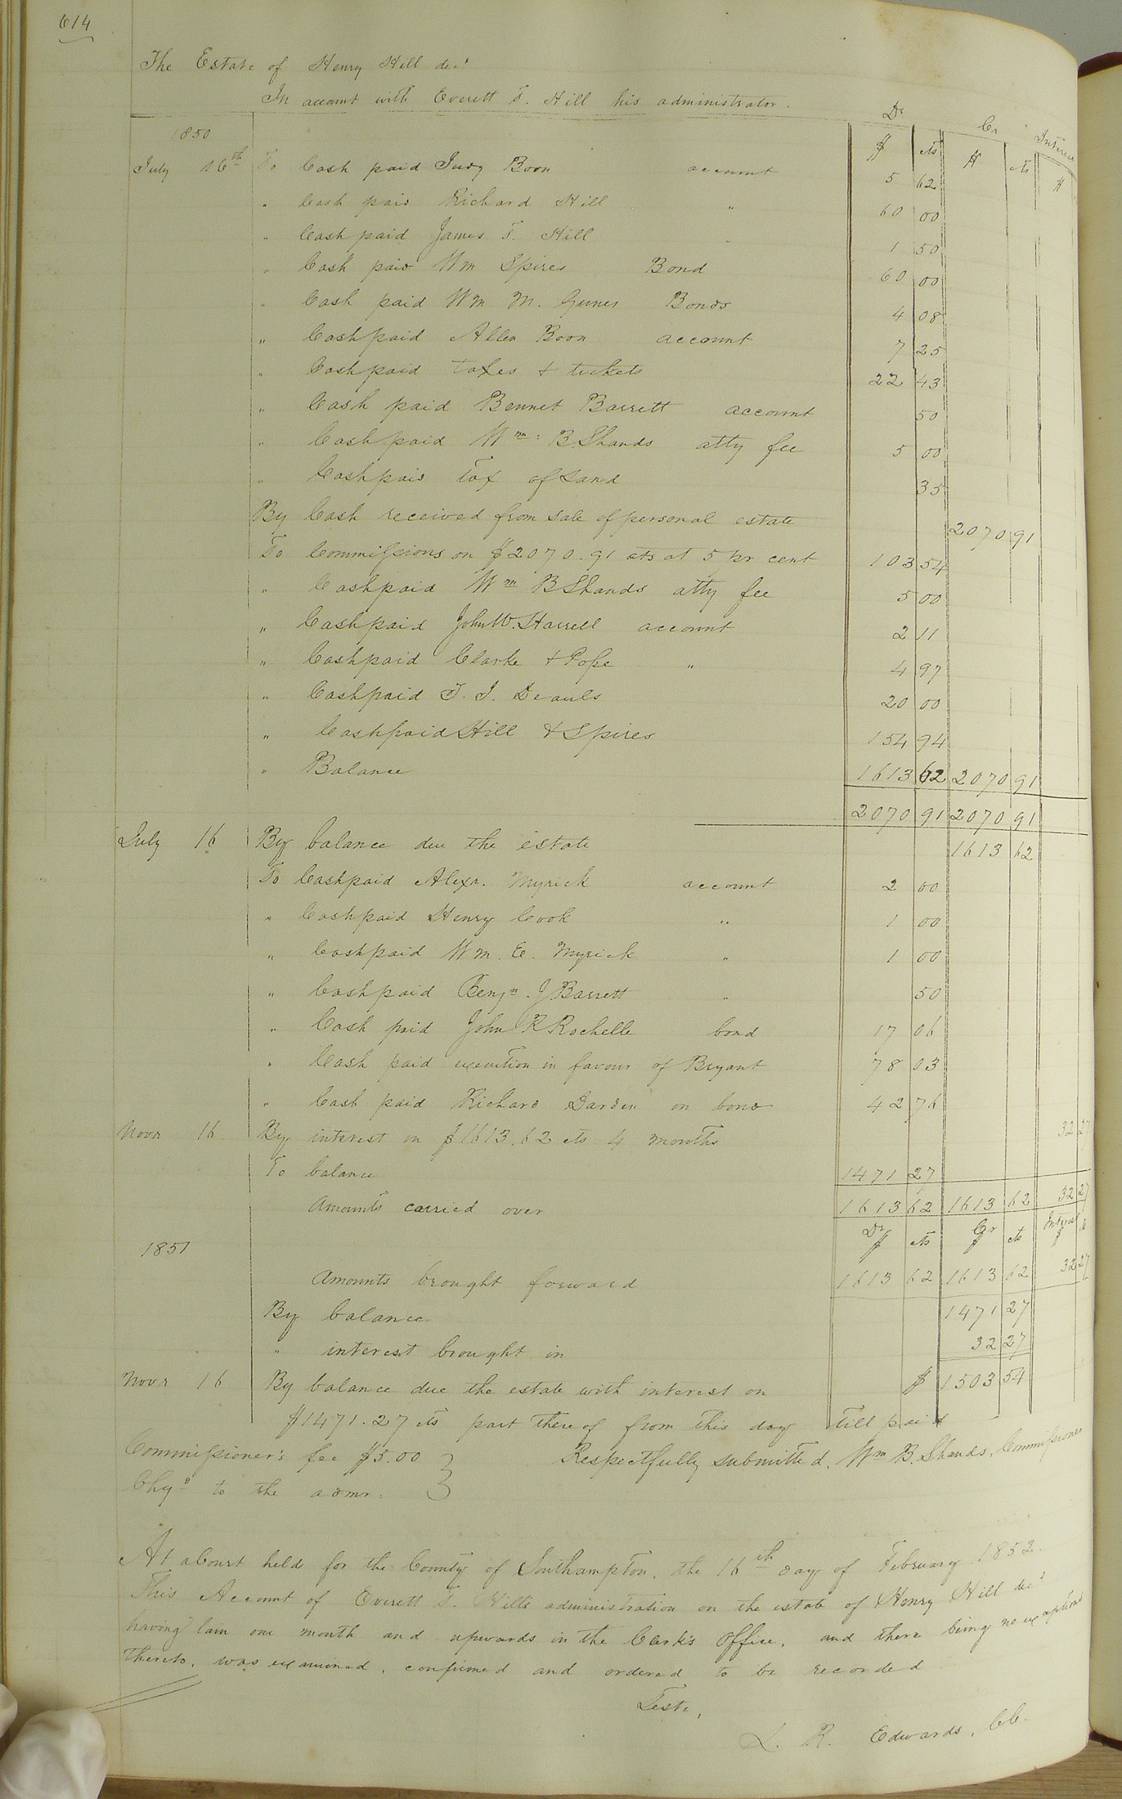 614
The Estate of Henry Hill decd
In account with Everett T. Hill his administrator.
Dr Cr Interest
1850 $ cts $ cts $
July 16th To Cash paid Judy Boon account 5 62
" Cash paid Richard Hill " 60 00
" Cash paid James T. Hill " 1 50
" Cash paid Wm Spires Bond 60 00
" Cash paid Wm M. Bonds 4 08
" Cash paid Allen Boon account 7 25
" Cash paid taxes & tickets 22 43
" Cash paid Bennet Barrett account 50
" Cash paid Wm: B. Shands atty fee 5 00
" Cash paid Tax of Land 35
By Cash received from sale of personal estate 2070 91
To Commissions on $2070.91 cts at 5 pr cent 103 54
" Cash paid Wm B Shands atty fee 5 00
" Cash paid John W. Harrell account 2 11
" Cash paid Clarke & Pope " 4 97
" Cash paid T. J. 20 00
" Cash paid Hill & Spires 154 94
" Balance 1613 62 2070 91
2070 91 2070 91
July 16 By balance due the estate 1613 62
To Cash paid Alexr. Myrick account 2 00
" Cash paid Henry Cook " 1 00
" Cash paid Wm. E. Myrick " 1 00
" Cash paid Benjn. J Barrett " 50
" Cash paid John R Rochelle bond 17 06
" Cash paid execution in favour of Bryant 78 03
" Cash paid Richard Darden on bond 42 76
Novr 16 By interest on $1613.62 cts 4 months 32 27
To balance 1471 27
Amounts carried over 1613 62 1613 62 32 27
Dr $ cts Cr $ cts Interest $
1851
Amounts brought forward 1613 62 1613 62 32 27
By balance 1471 27
" interest brought in 32 27
Novr 16 By balance due the estate with interest on $ 1503 54
$1471.27 cts part thereof from this day till paid
Commissioner's fee $5.00 Respectfully submitted, Wm B. Shands, Commissioner
Chgd to the admr.
At a Court held for the County of Southampton, the 16th day of February 1852.
This Account of Everett T. Hills administration on the estate of Henry Hill decd
having lain one month and upwards in the Clerk's Office, and there being no exceptions
thereto, was examined, confirmed and ordered to be recorded
Teste,
L. R. Edwards, CC.